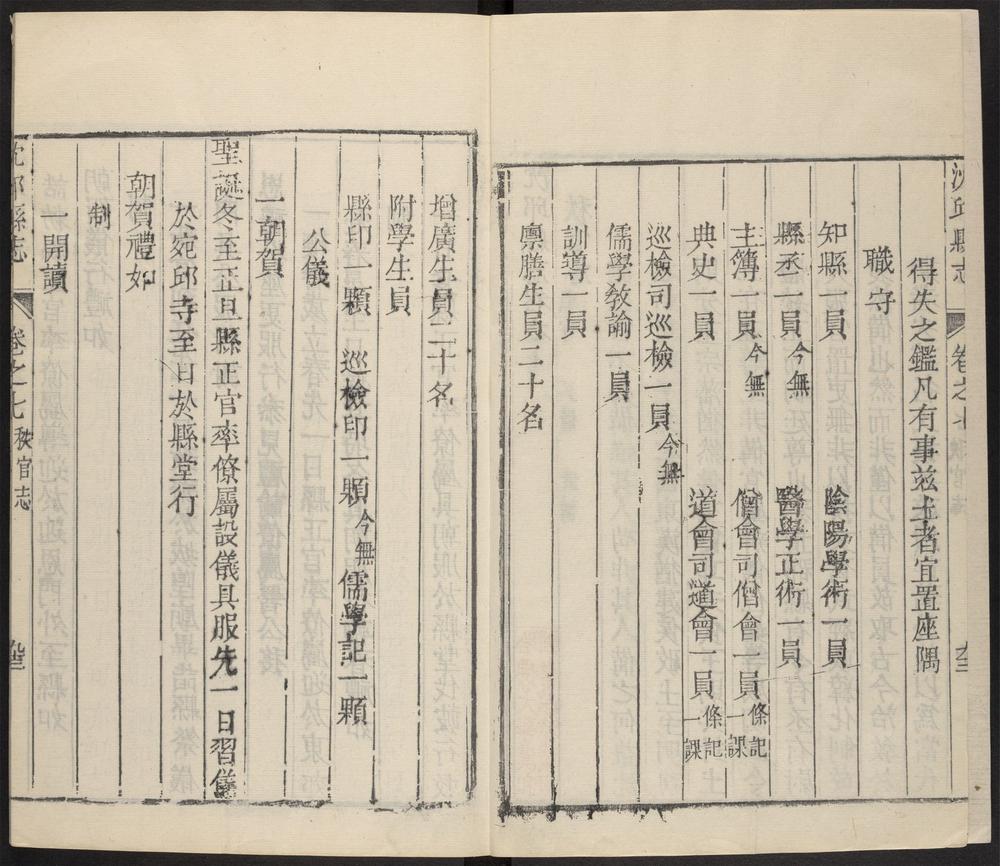 沈邱縣志 卷之七 秩官志
得失之鑑凡有事兹土者宜置座隅
職守
知縣一員 陰陽學術一員
縣丞一員今無 醫學正術一員
主簿一員今無 僧會司僧會一員條記一課
典史一員 道會司道會一員條記一課
巡檢司巡檢一員今無
儒學教諭一員
訓導一員
廪膳生員二十名
增廣生員二十名
附學生員
縣印一顆 巡檢印一顆今無 儒學記一顆
公儀
一朝賀
聖誕冬至正旦縣正官率僚屬設儀具服先一日習儀
於宛邱寺至日於縣堂行
朝賀禮如
制
一開讀
沈邱縣志 卷之七 秩官志